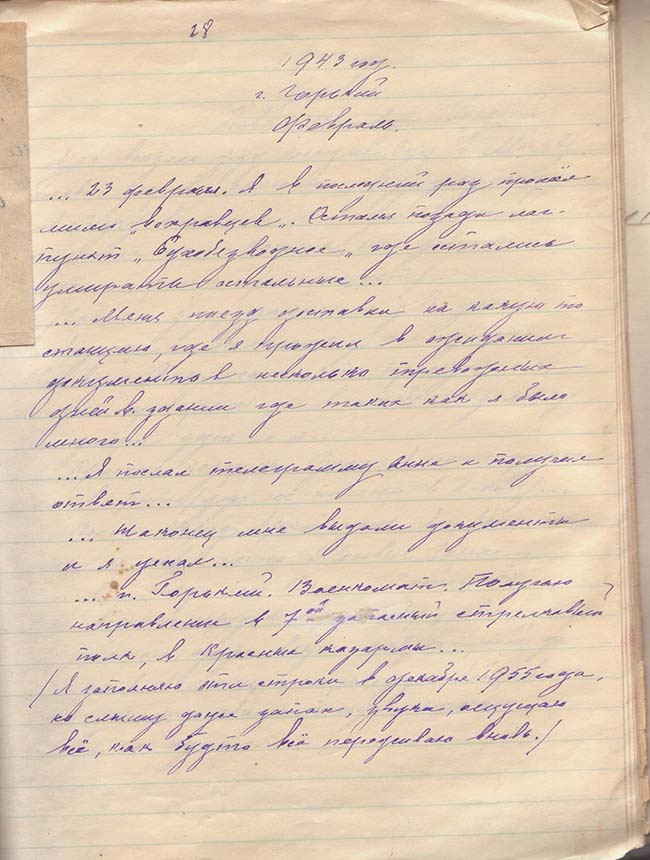 28
1943 год.
г. Горький
Февраль.
... 23 февраля. Я в последний раз прошёл
мимо „вохравцев„. Остался позади лаг-
пункт „Сухобезводное„ где остались
умирать остальные...
... Меня поезд доставил на какую то
станцию, где я прожил в ожидании
документов несколько тревожных
дней в здании где таких как я было
много...
... Я послал телеграмму Анне и получил
ответ...
... Наконец мне выдали документы
и я уехал...
... г. Горький. Военкомат. Получаю
направление в 7ой запасный стрелковый
полк, в Красные казармы...
/Я заполняю эти строки в декабре 1955 года,
но слышу даже запах, звуки, ощущаю
всё, как будто всё переживаю вновь./